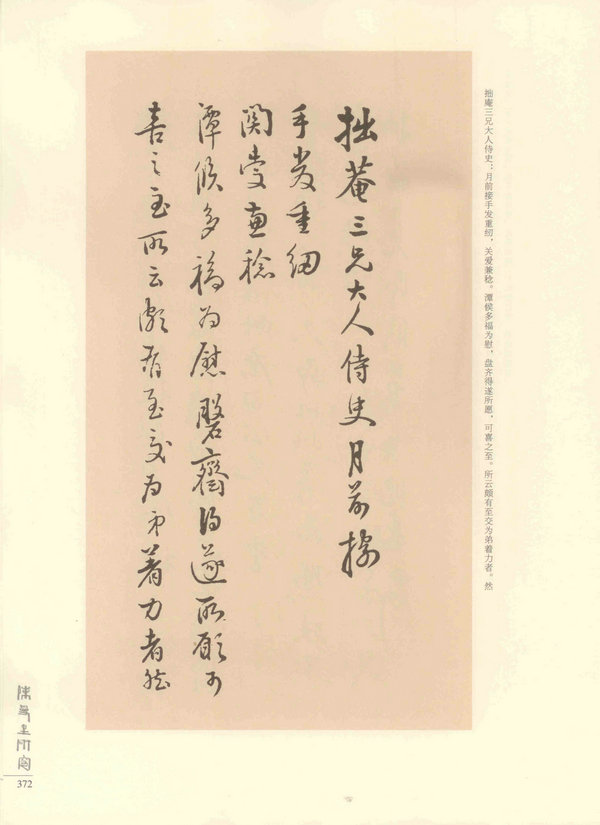 拙庵三兄大人侍史：月前接手发重纫，关爱兼稔。潭候多福为慰，盘齐得遂所愿，可喜之至。所云颇有至交为弟着力者。然
拙菴三兄大人侍史月前接
手發重紉
關愛兼稔
潭候多福為慰磬齋得遂所願可
喜之至所云頗有至交為弟著力者然
陳曼生研究
372